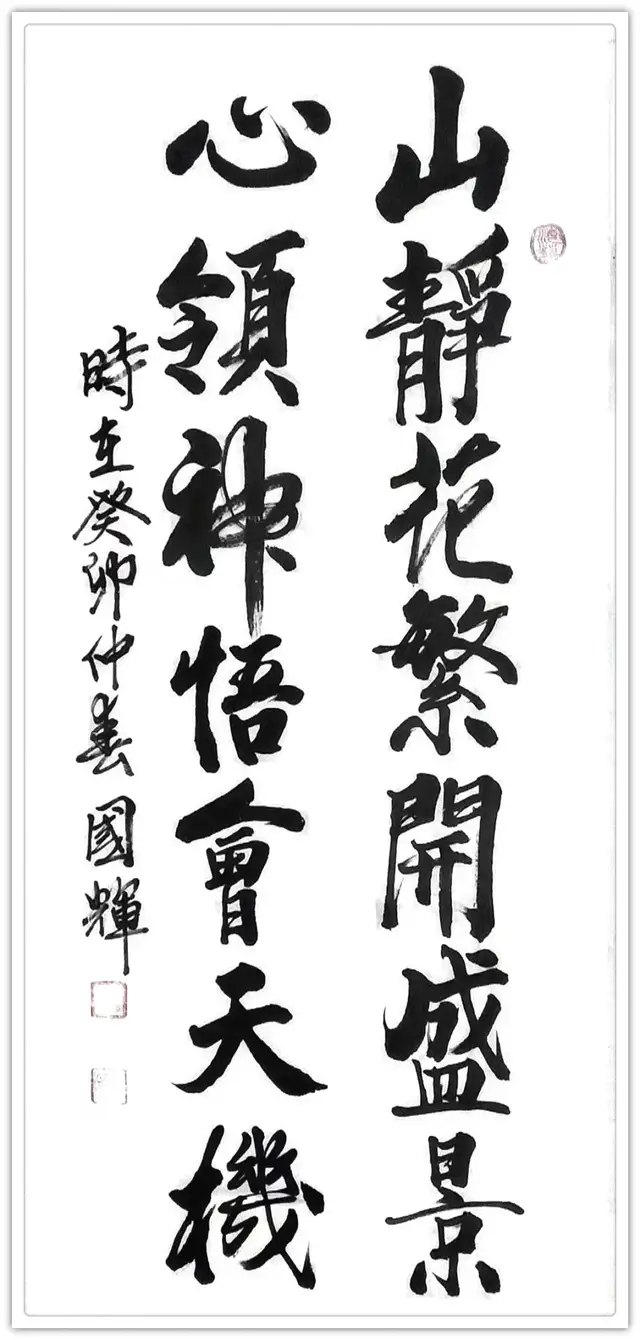 山靜花繁開盛景
心領神悟會天機
時在癸卯仲春 國輝